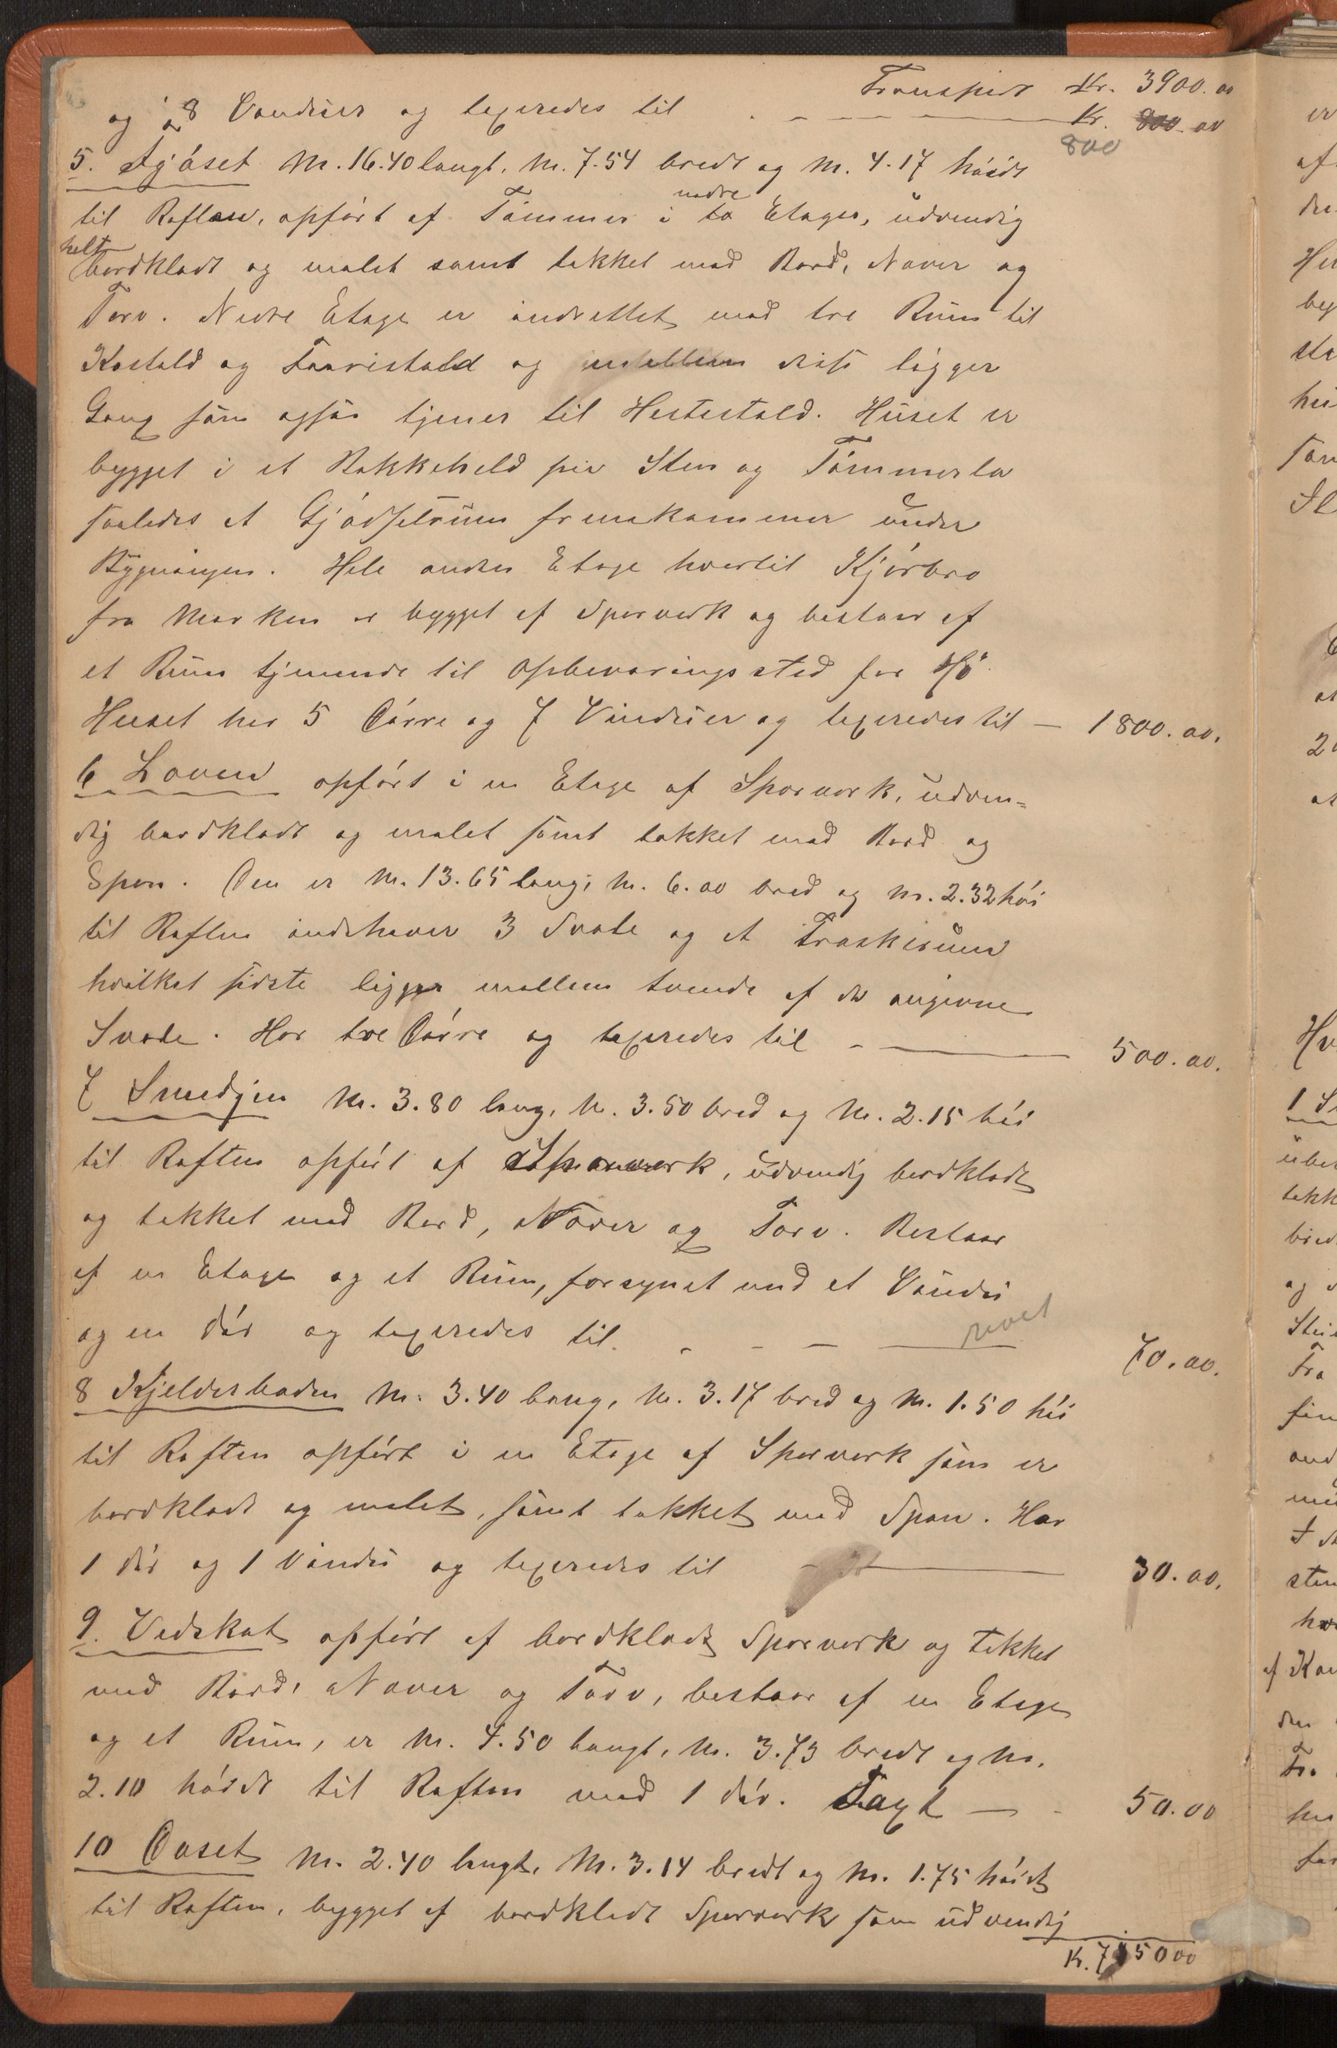 Transport Kr. 3900.00
og 8 Vinduer og taxeredes til - - Kr. 800.00
800
5. Fjöset M. 16.40 langt, M. 7.54 bredt og M. 4.17 höidt
til Raften, opfört af Tömmer i nedre to Etager, udvendig
helt bordklædt og malet samt tækket med Bord, Næver og
Torv. Nedre Etage er indrettet med tre Rum til
Kostald og Faarestald og mellem disse ligger
Gang som ogsaa tjener til Hestestald. Huset er
bygget i et Bakkeheld paa Sten og Tömmerla
saaledes at Gjödselrum fremkommer under
Bygningen. Hele anden Etage hvortil Kjörbro
fra Marken er bygget af Sperverk og bestaar af
et Rum tjenende til Opbevaringssted for Hö.
Huset har 5 Dörre og 7 Vinduer og taxeredes til — 1800.00.
6 Laven opfört i en Etage af Sperverk, udven=
dig bordklædt og malet samt tækket med Bord og
Spon. Den er M. 13.65 lang, M. 6.00 bred og M. 2.32 höi
til Raften indehaver 3 Svale og et Træskerum
hvilket sidste ligger mellem tvende af de angivne
Svale. Har tre Dörre og taxeredes til - — 500.00.
7 Smedjen M. 3.80 lang, M. 3.50 bred og M. 2.15 höi
til Raften opfört af Sperverk, udvendig bordklædt
og tækket med Bord, Næver og Torv. Bestaar
af en Etage og et Rum, forsynet med et Vindu
og en Dör og taxeredes til. - - — 70.00.
revet
8 Kjelderboden M. 3.40 lang, M. 3.17 bred og M. 1.50 höi
til Raften opfört i en Etage af Sperverk som er
bordklædt og malet, samt tækket med Spon. Har
1 Dör og 1 Vindu og taxeredes til — 30.00.
9. Vedskot opfört af bordklædt Sperverk og tækket
med Bord, Næver og Torv, bestaar af en Etage
og et Rum, er M. 4.50 langt, M. 3.73 bredt og M.
2.10 höidt til Raften med 1 Dör. Taxt — - 50.00
10 Daset M. 2.40 langt, M. 3.14 bredt og M. 1.75 höidt
til Raften, bygget af bordklædt Sperverk som udvendig
K. 7150 00